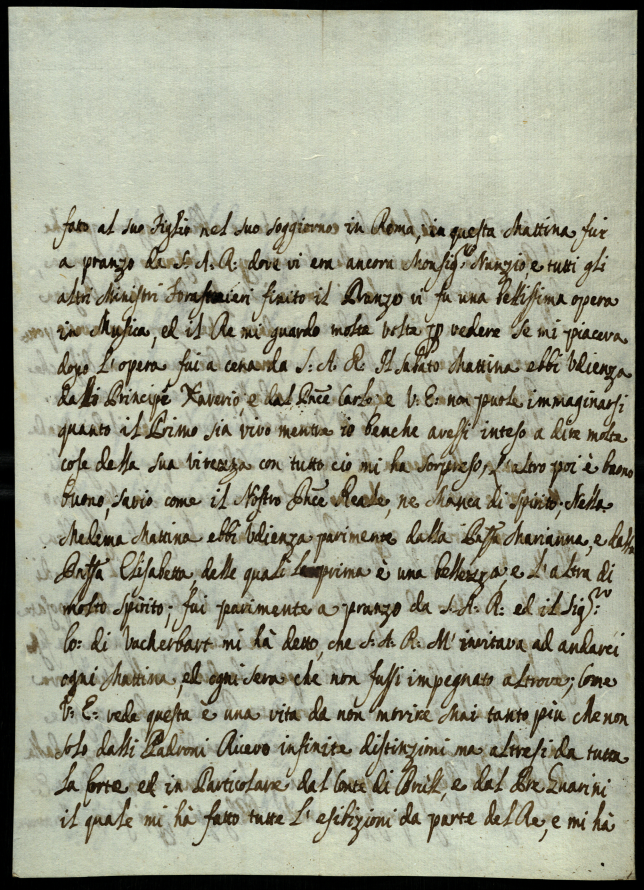 fatto al suo Figlio nel suo soggiorno in Roma, in questa Mattina fui
a pranzo da S: A. R: dove vi era ancora Monsig.re Nunzio e tutti gli
altri Ministri Forastieri finito il Pranzo vi fu una bellissima opera
in Musica, ed il Re mi guardò molte volte per vedere se mi piaceva
dopo L'opera fui a cena da S: A. R. Il Sabato Mattina ebbi Udienza
dalli Principe Xaverio, e dal Pnce Carlo e V: E: non puole immaginarsi
quanto il Primo sia vivo mentre io benche avessi inteso a dire molte
cose della sua vivezza con tutto ciò mi ha sorpreso, L'altro poi è buono
buono, savio come il Nostro Pnce Reale, ne Manca di Spirito. Nella
Medema Mattina ebbi Udienza parimente dalla Pnssa Marianna, e dalla
Pnssa Elisabetta delle quali la prima è una bellezza e L'altra di
molto spirito; fui parimente a pranzo da S. A. R: ed il Sig.re
Co: di Vacherbart mi hà detto, che S: A. R. M'invitava ad andarci
ogni Mattina, ed ogni sera che non fussi impegnato altrove; Come
V: E: vede questa è una vita da non morire Mai tanto più che non
solo dalli Padroni Ricevo infinite distinzioni ma altresi da tutta
La Corte ed in Particolare dal Conte di Brill, e dal Pre Guarini
il quale mi hà fatto tutte L'esibizioni da parte del Re, e mi hà